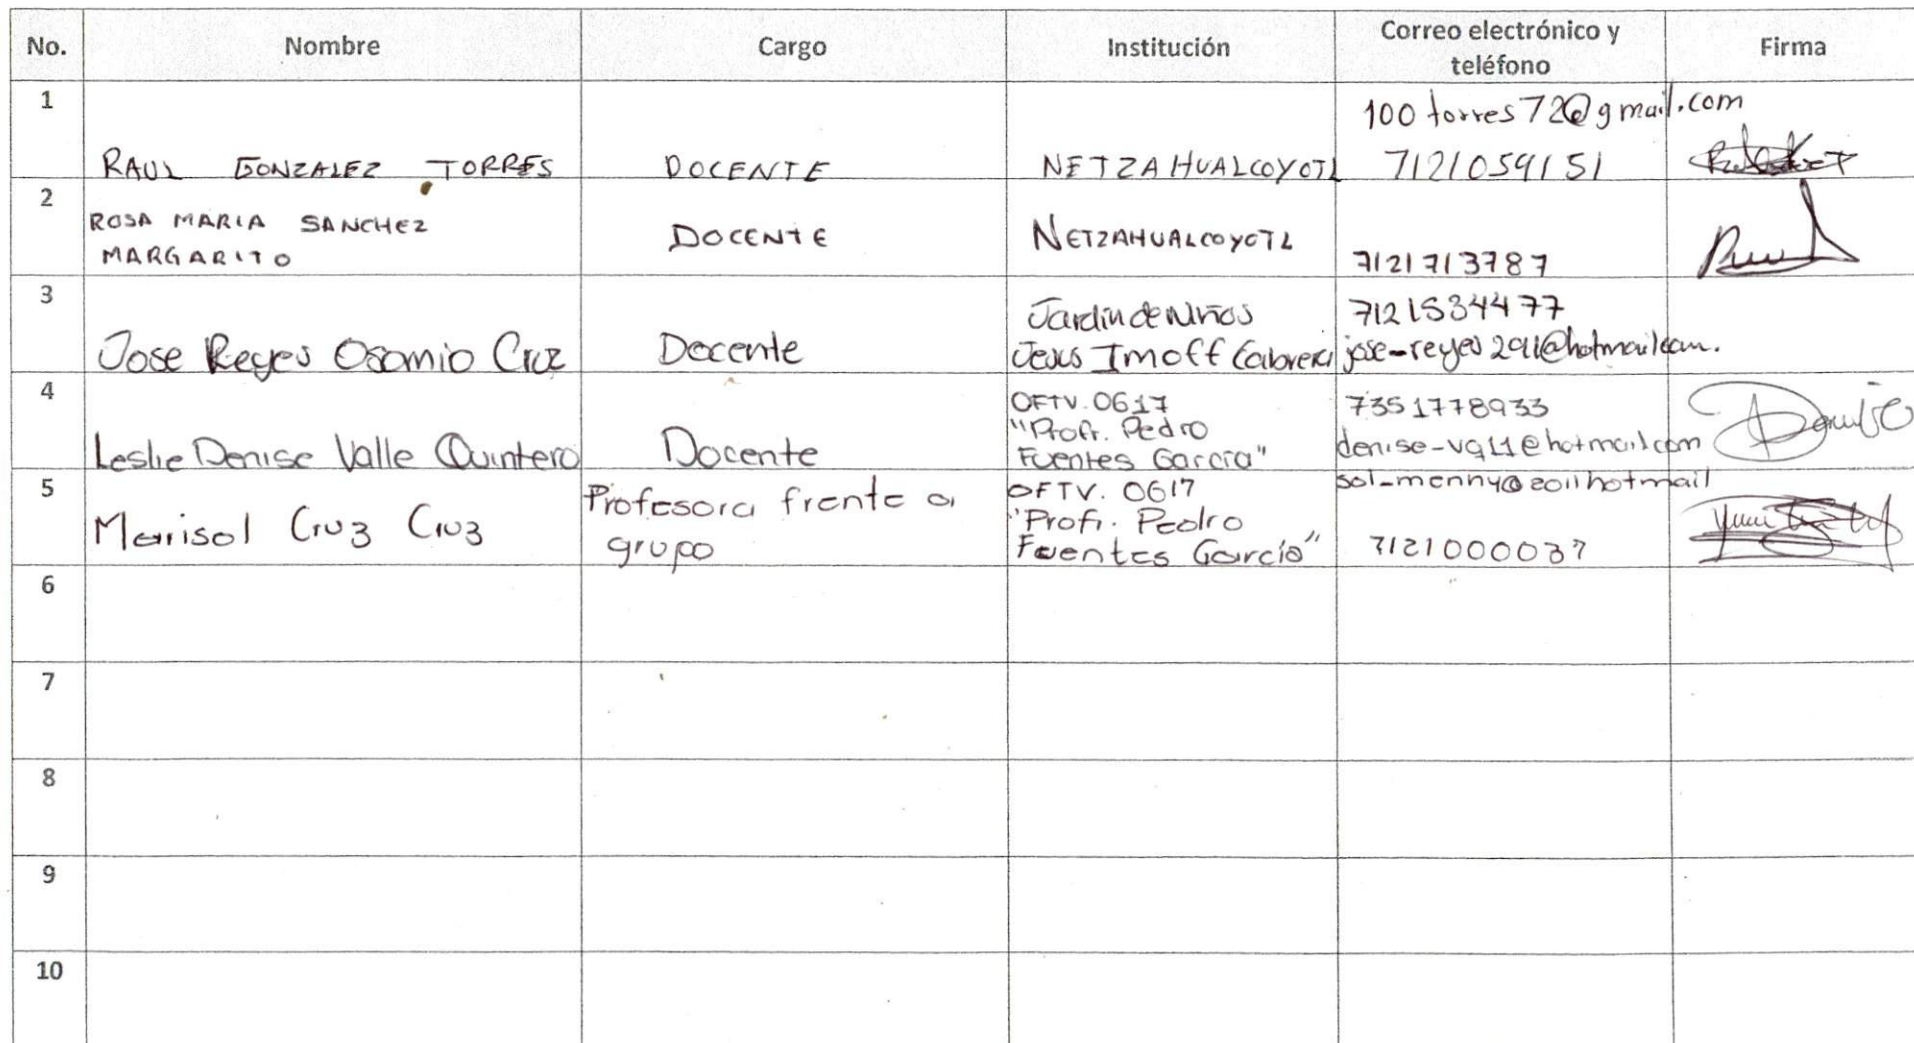 No. Nombre Cargo Institución Correo electrónico y teléfono Firma
1 RAUL GONZALEZ TORRES DOCENTE NETZAHUALCOYOTL 100torres72@gmail.com 7121059151
2 ROSA MARIA SANCHEZ MARGARITO DOCENTE NETZAHUALCOYOTL 7121713787
3 Jose Reyes Osornio Cruz Docente Jardin de Niños Jesus Imoff Cabrera 7121534477
4 Leslie Denise Valle Quintero Docente OFTV. 0617 "Profr. Pedro Fuentes García" 7351778933 denise-vq11@hotmail.com
5 Marisol Cruz Cruz Profesora frente a grupo OFTV. 0617 "Profr. Pedro Fuentes García" 7121000037
6
7
8
9
10